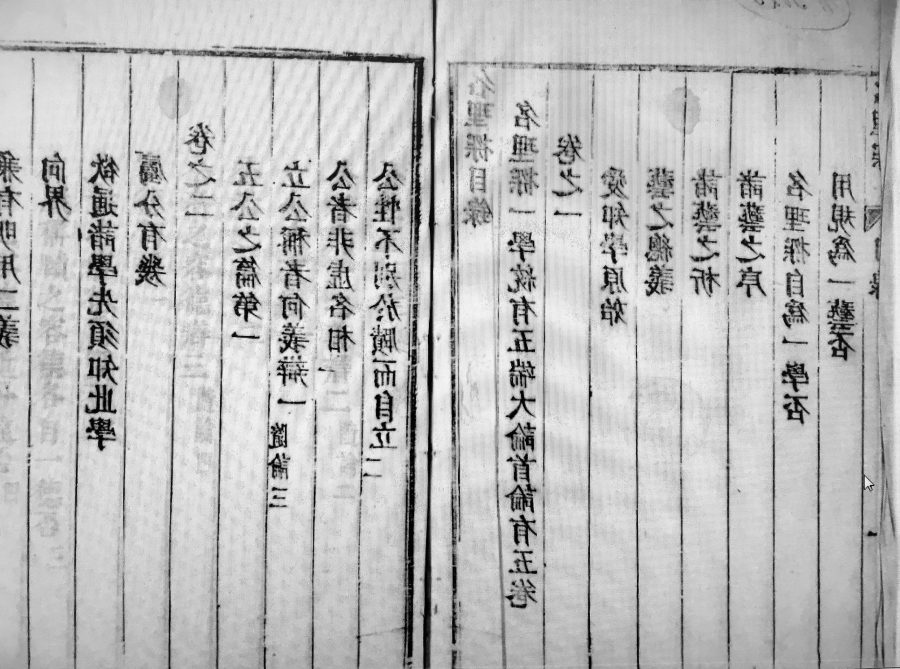 名理探目錄
名理探一學統有五端大論首論有五卷
卷之一
愛知學原始
藝之總義
諸藝之析
諸藝之序
名理探自為一學否
用規為一藝否
理探 目錄 一
兼有明用二義
向界
欲通諸學先須知此學
屬分有幾
卷之二
五公之篇第一
立公稱者何義辯一 隨論三
公者非虛名相一
公性不別於賾而自立二